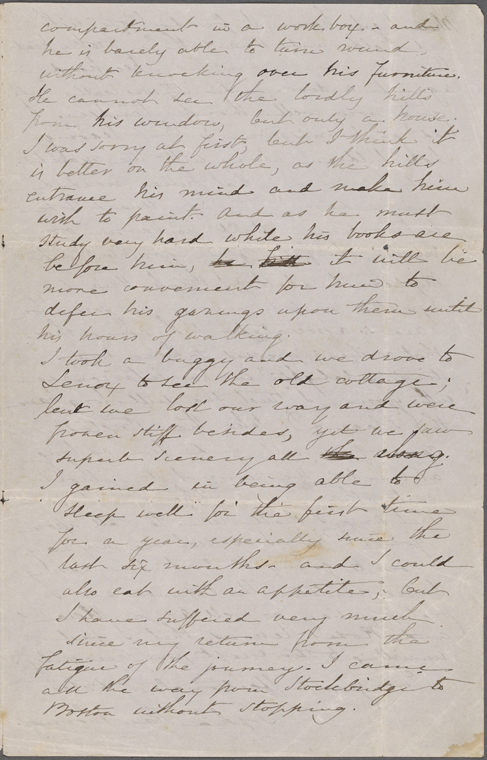 compartment in a work box - and
he is barely able to turn round
without knocking over his furniture.
He cannot see the lordly hills
from his window, but only a house.
I was sorry at first, but I think it
is better on the whole, as the hills
entrance his mind and make him
wish to paint - And as he must
study very hard while his books are
before him, it will be
more convenient for him to
defer his gazings upon them until
his hours of walking.
I took a buggy and we drove to
Lenox to see the old cottage;
but we lost our way and were
frozen stiff besides, yet we saw
superb scenery all the way.
I gained in being able to
sleep well for the first time
for a year, especially since the
last six months - and I could
also eat with an appetite; but
I have suffered very much
since my return from the
fatigue of the journey. I came
all the way from Stockbridge to
Boston without stopping.